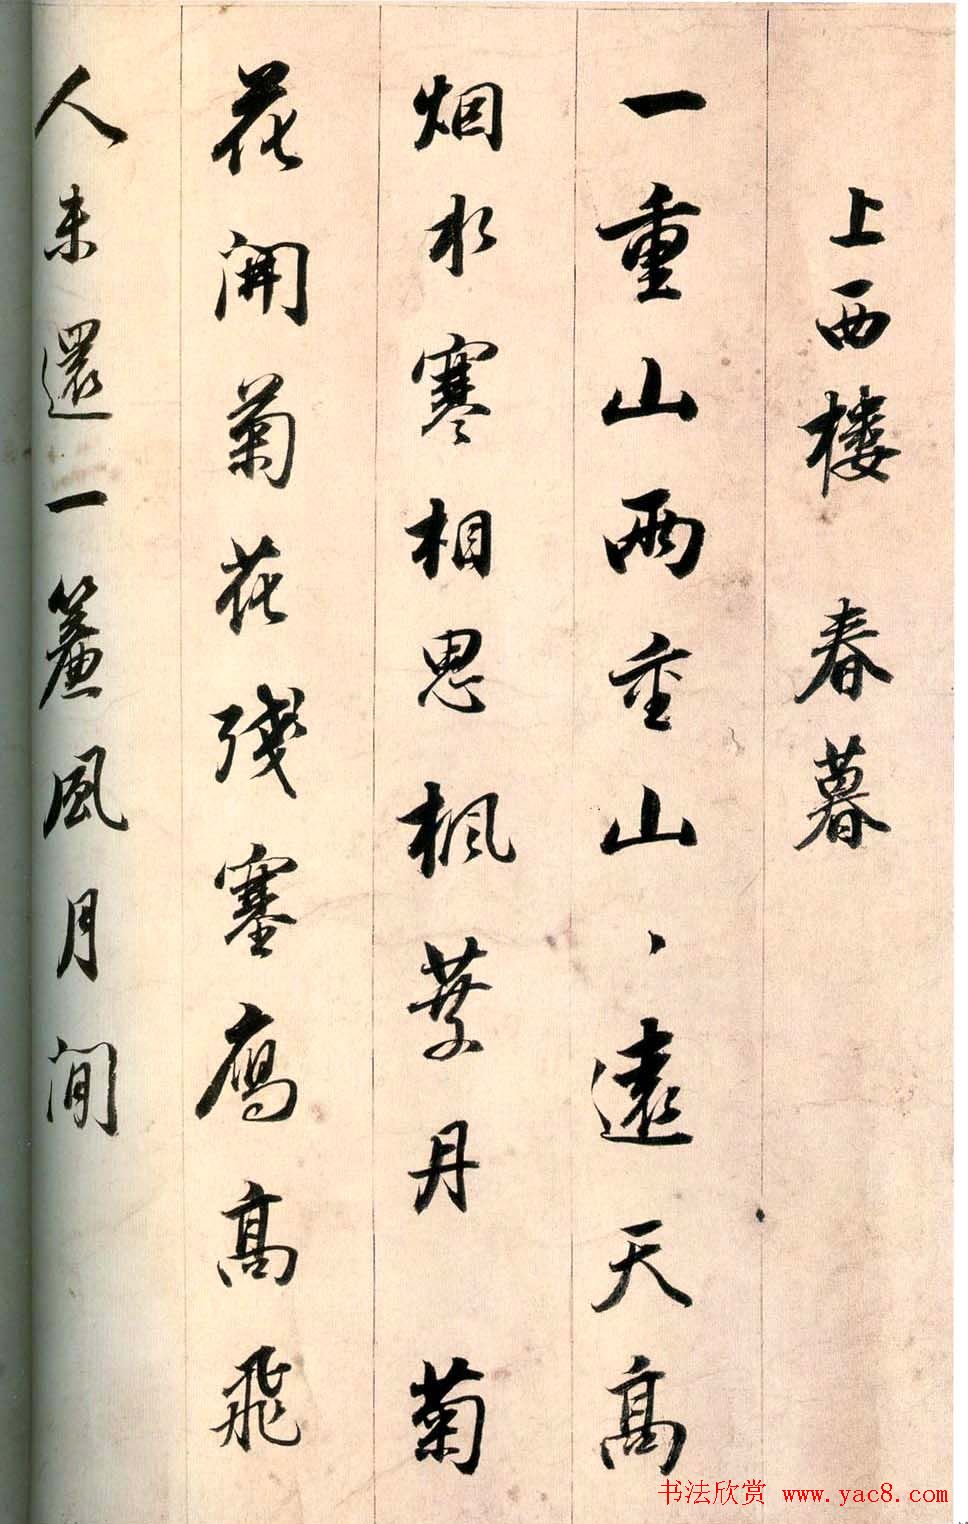 上西楼 春暮
一重山兩重山、遠天高
烟水寒相思楓葉丹 菊
花開菊花殘塞鴈高飛
人未還一簾風月間
书法欣赏 www.yac8.com